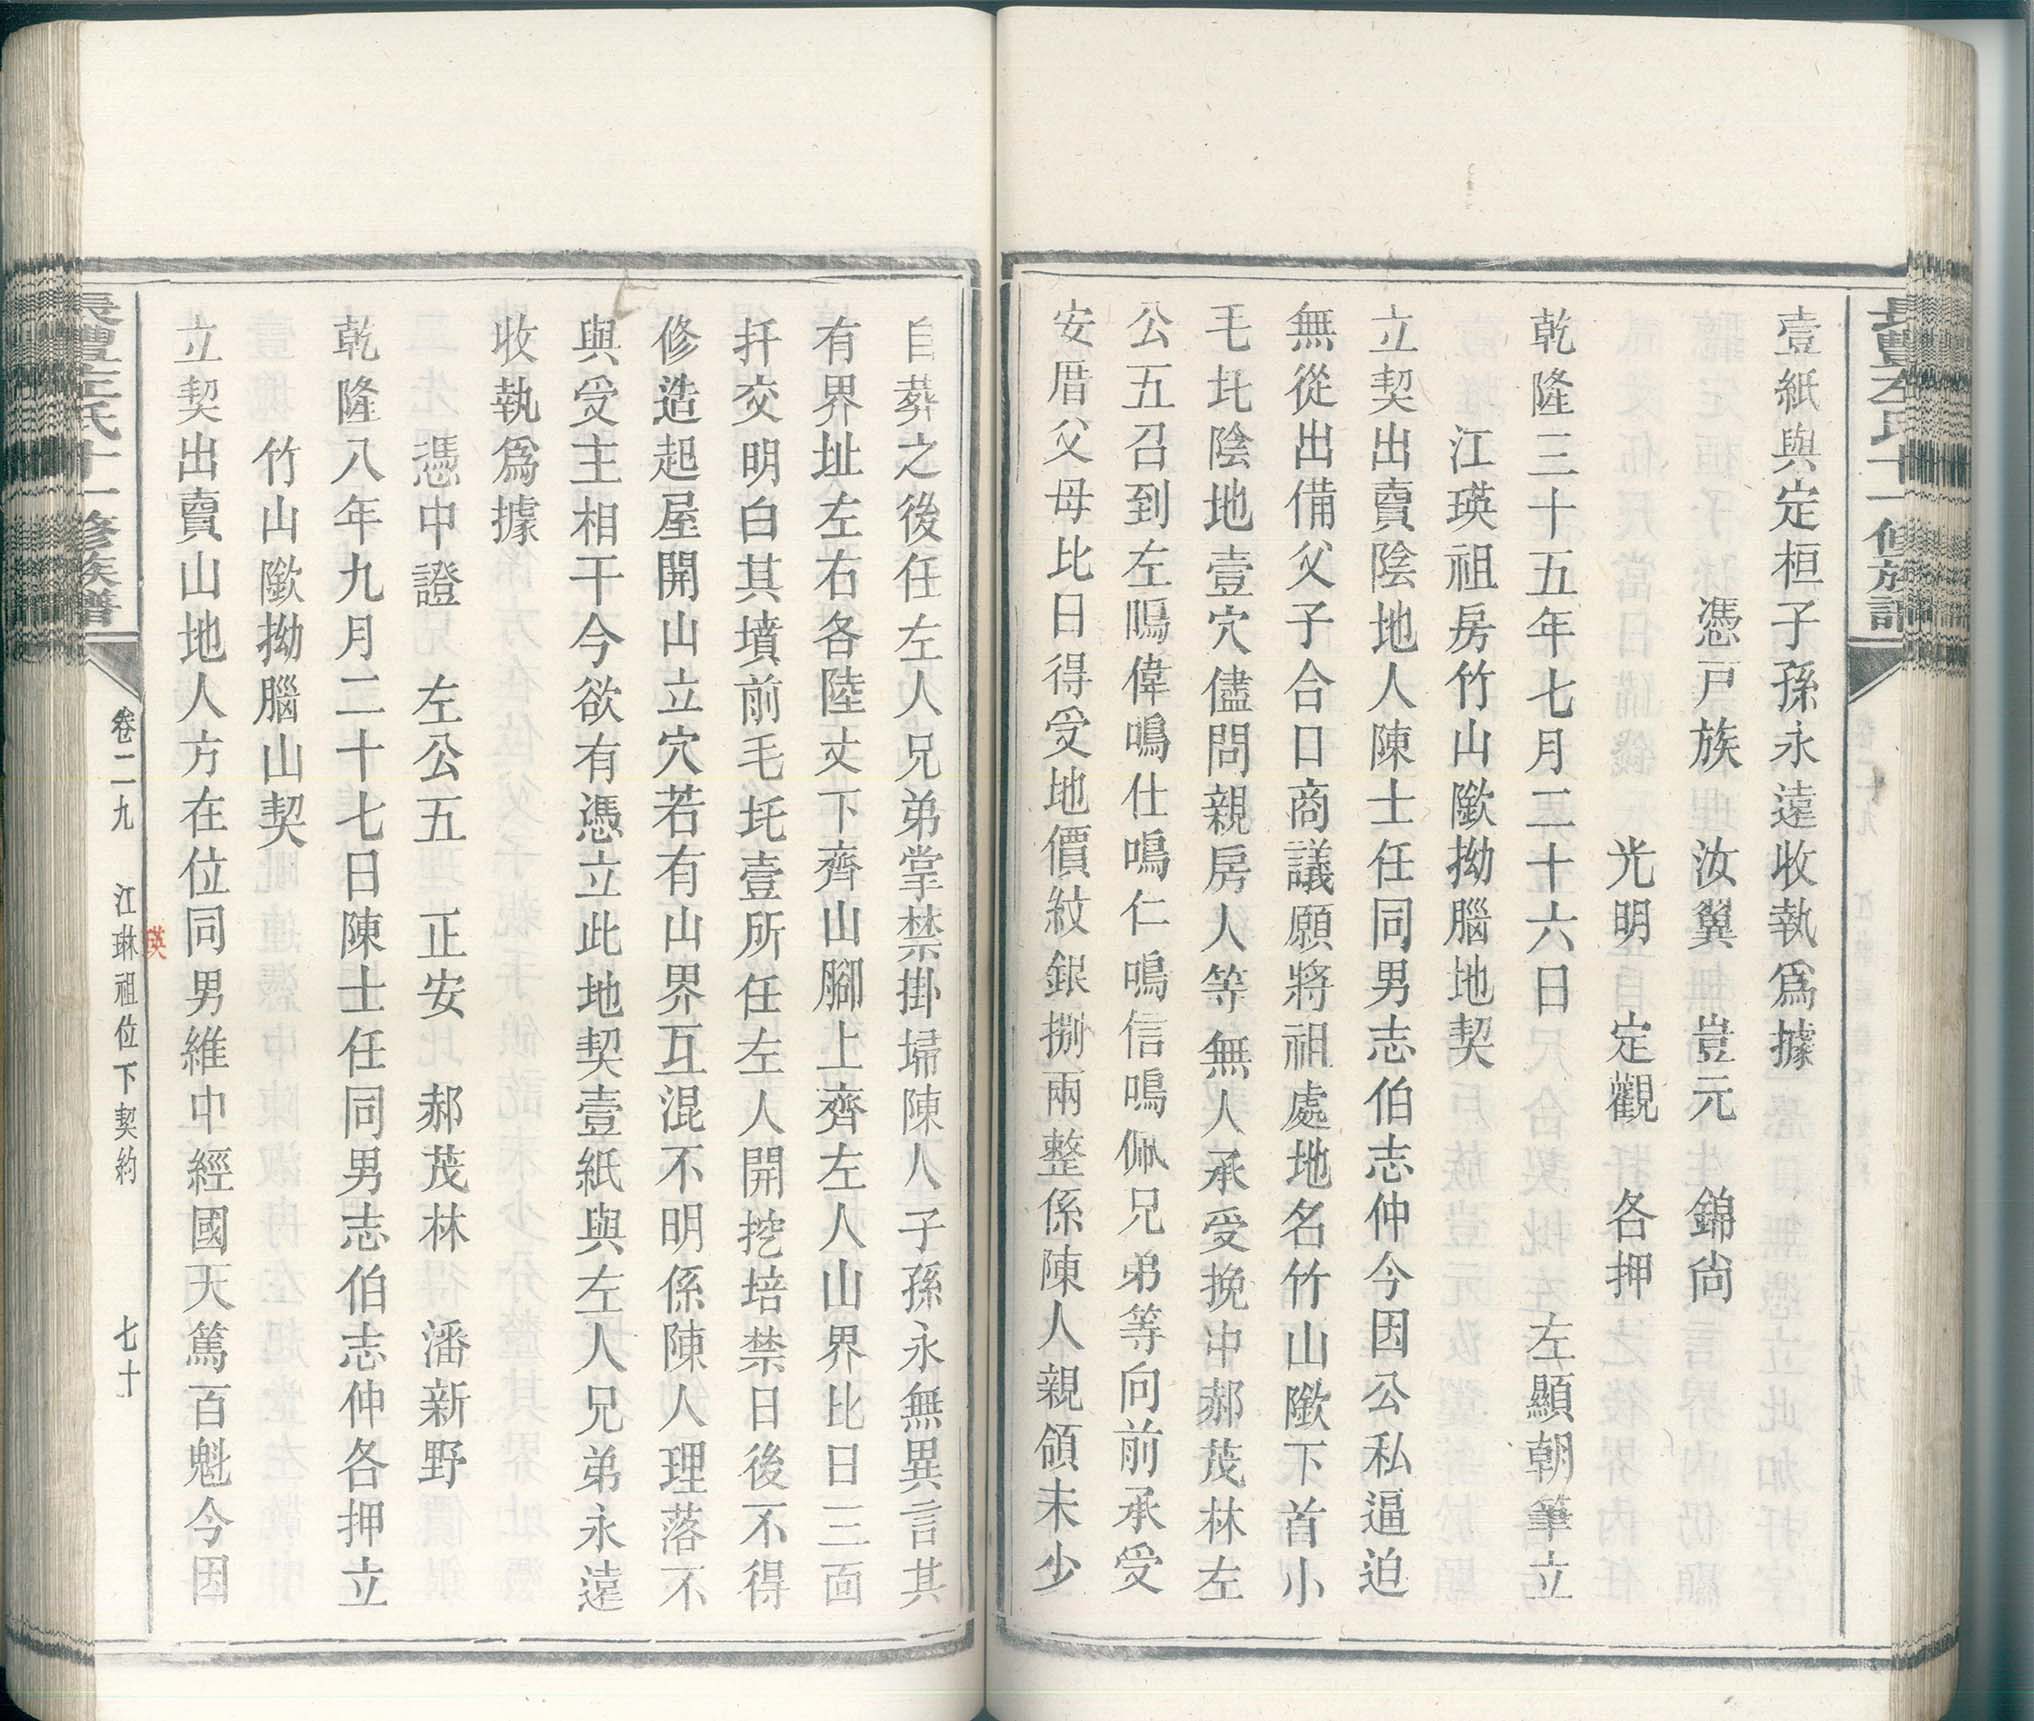 壹紙與定桓子孫永遠收執爲據
憑戸族 汝翼 豈元 錦尚
光明 定觀 各押
乾隆三十五年七月二十六日 左顯朝筆立
江瑛祖房竹山歛拗腦地契
立契出賣陰地人陳士任同男志伯志仲今因公私逼迫
無從出備父子合口商議願將祖處地名竹山歛下首小
毛圫陰地壹穴儘問親房人等無人承受挽中郝茂林左
公五召到左鳴偉鳴仕鳴仁鳴信鳴佩兄弟等向前承受
安厝父母比日得受地價紋銀捌兩整係陳人親領未少
自葬之後任左人兄弟掌禁掛埽陳人子孫永無異言其
有界址左右各陸丈下齊山腳上齊左人山界比日三面
扦交明白其墳前毛圫壹所任左人開挖培禁日後不得
修造起屋開山立穴若有山界互混不明係陳人理落不
與受主相干今欲有憑立此地契壹紙與左人兄弟永遠
收執爲據
憑中證 左公五 正安 郝茂林 潘新野
乾隆八年九月二十七日陳士任同男志伯志仲各押立
竹山歛拗腦山契
立契出賣山地人方在位同男維中經國天篤百魁今因
長豐左氏十一修族譜
卷二九 江琳祖位下契約 七十
瑛